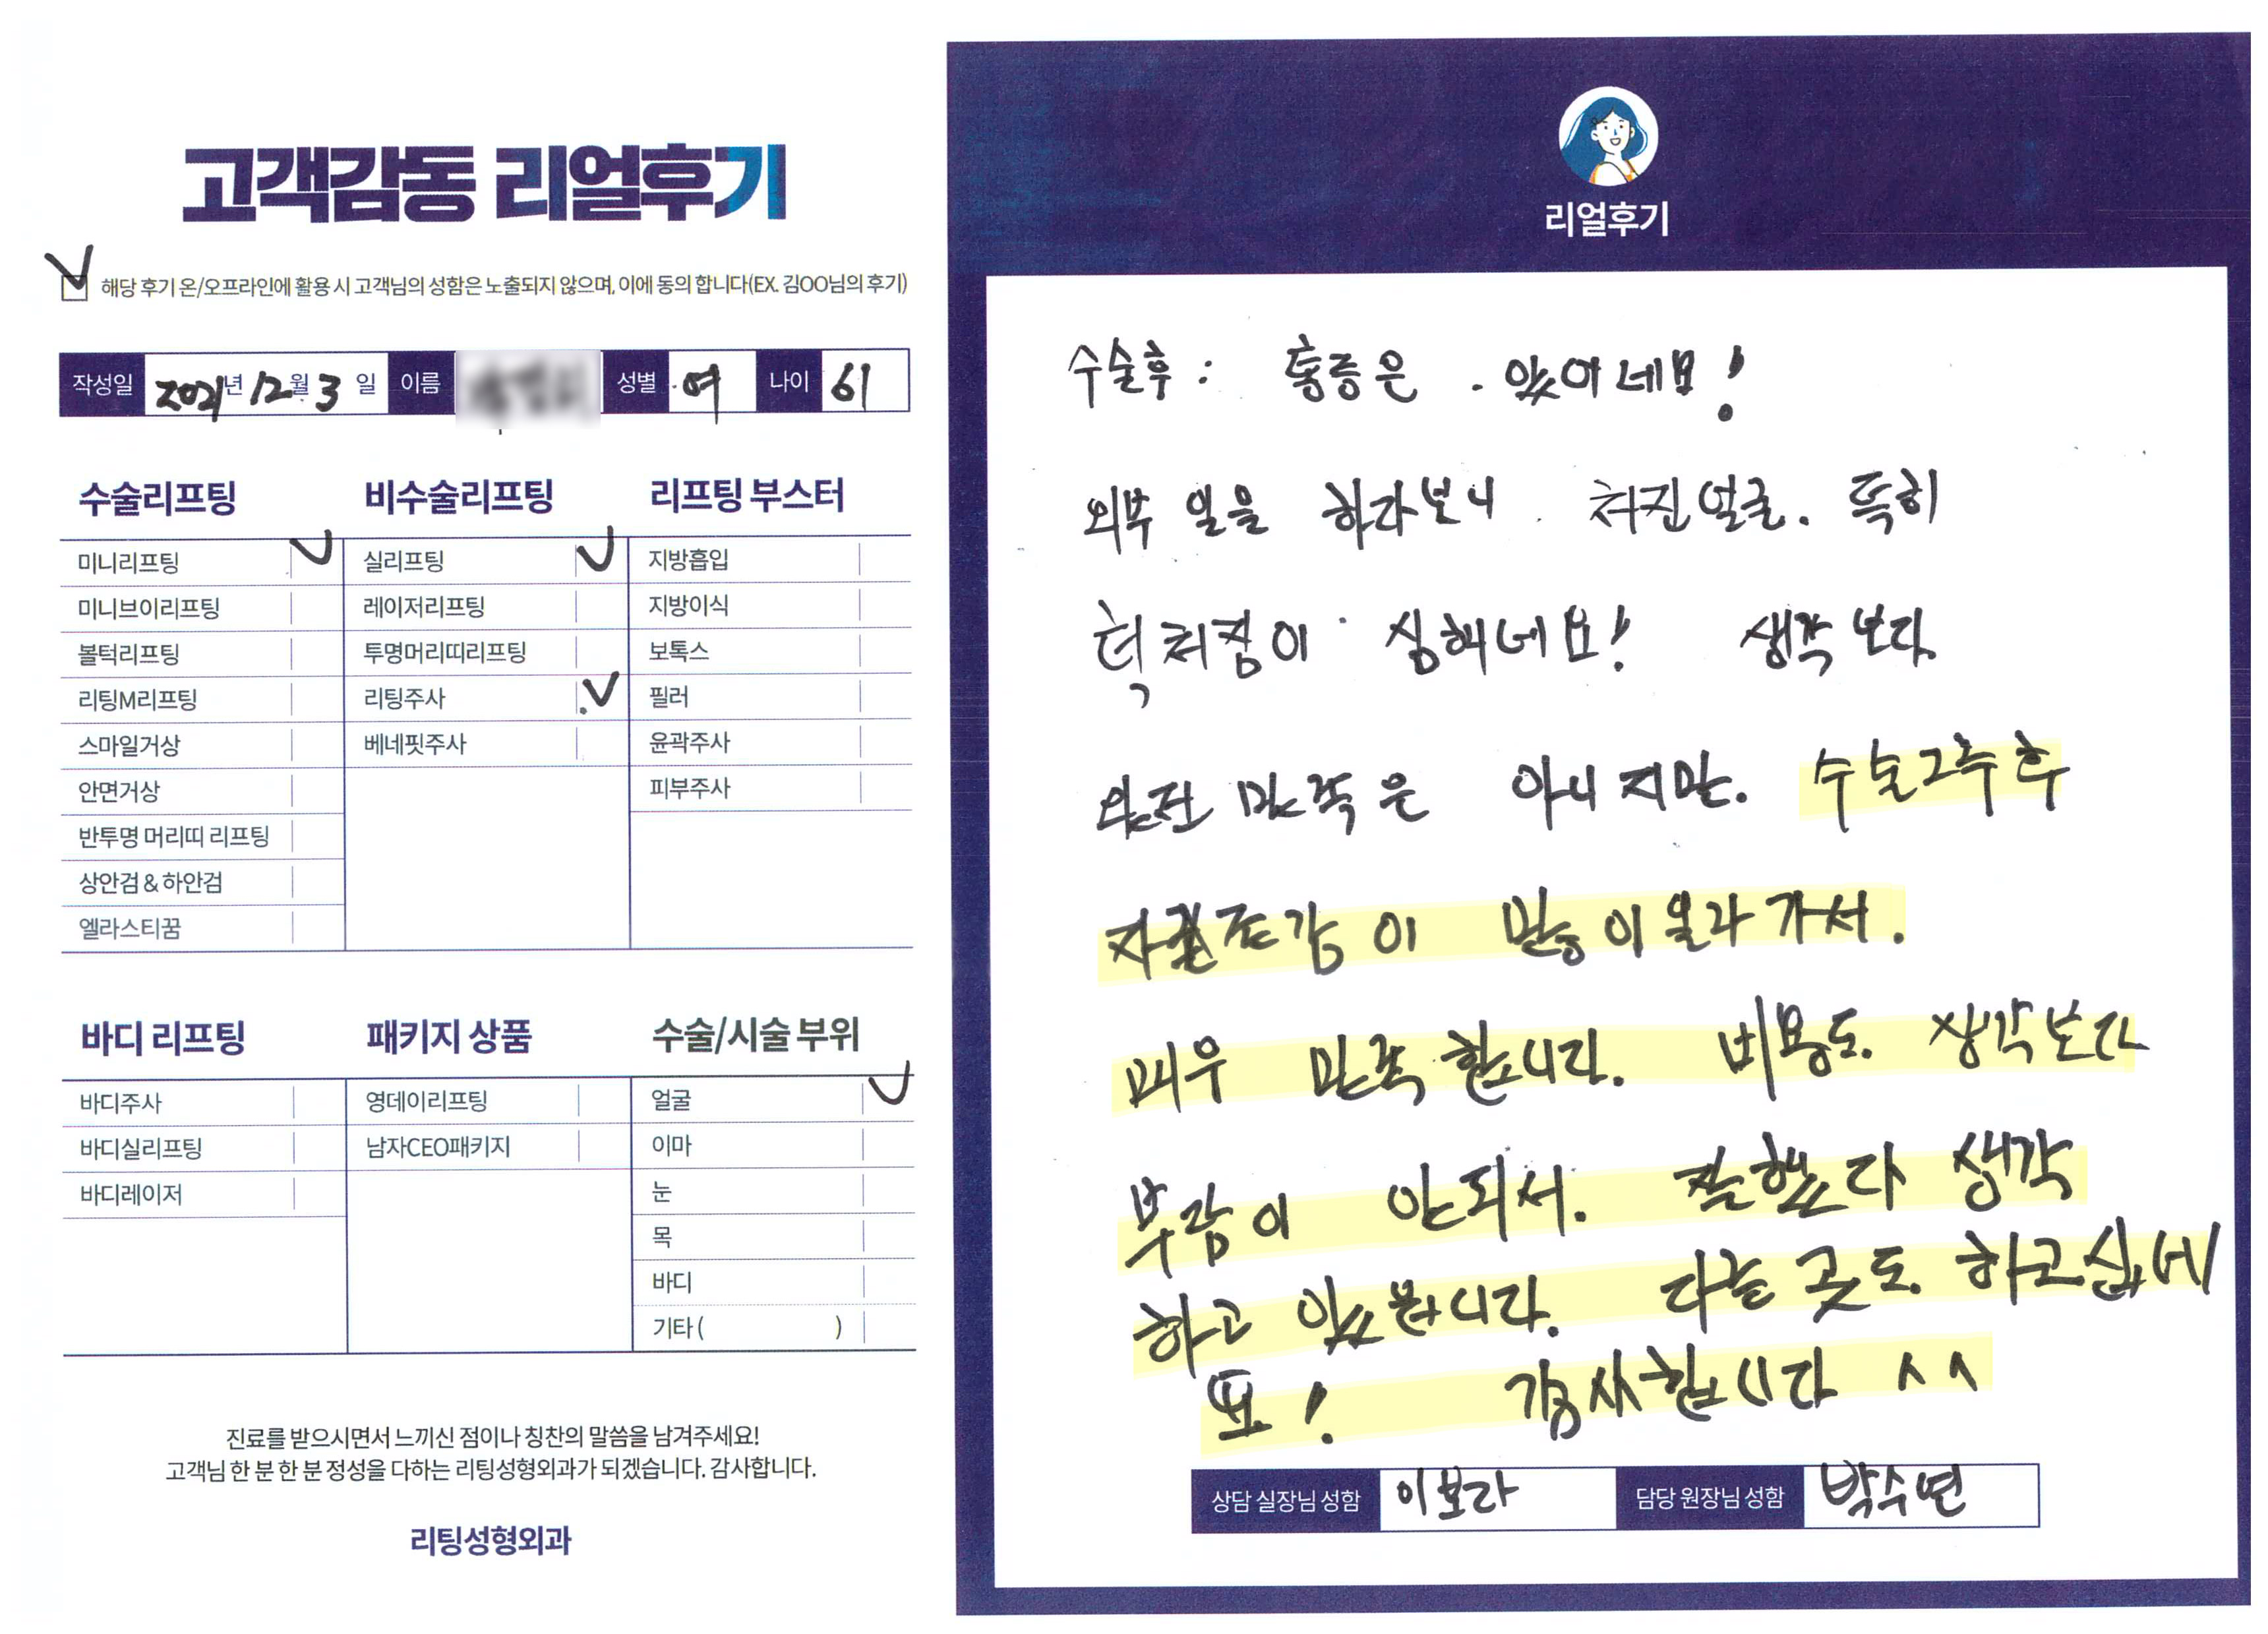 고객감동 리얼후기
해당 후기 온/오프라인에 활용 시 고객님의 성함은 노출되지 않으며, 이에 동의 합니다(EX. 김OO님의 후기)
작성일 2021년 12월 3일 이름 성별 여 나이 61
수술리프팅 비수술리프팅 리프팅 부스터
미니리프팅 실리프팅 지방흡입
미니브이리프팅 레이저리프팅 지방이식
볼턱리프팅 투명머리띠리프팅 보톡스
리팅M리프팅 리팅주사 필러
스마일거상 베네핏주사 윤곽주사
안면거상 피부주사
반투명 머리띠 리프팅
상안검 & 하안검
엘라스티꿈
바디 리프팅 패키지 상품 수술/시술 부위
바디주사 영데이리프팅 얼굴
바디실리프팅 남자CEO패키지 이마
바디레이저 눈
목
바디
기타 ( )
진료를 받으시면서 느끼신 점이나 칭찬의 말씀을 남겨주세요!
고객님 한 분 한 분 정성을 다하는 리팅성형외과가 되겠습니다. 감사합니다.
리팅성형외과
리얼후기
수술후 : 통증은 . 있어네요!
외부 일을 하라보니 . 처진얼굴. 특히
턱처짐이 심해네요! 생각보다
완전 만족은 아니지만. 수술2주후
자존감이 많이올라가서.
매우 만족합니다. 비용도. 생각보다
부담이 안되서. 잘했다 생각
하고 있습니다. 다른 곳도. 하고십네
요! 감사합니다 ^^
상담 실장님 성함 이보라 담당 원장님 성함 박수연